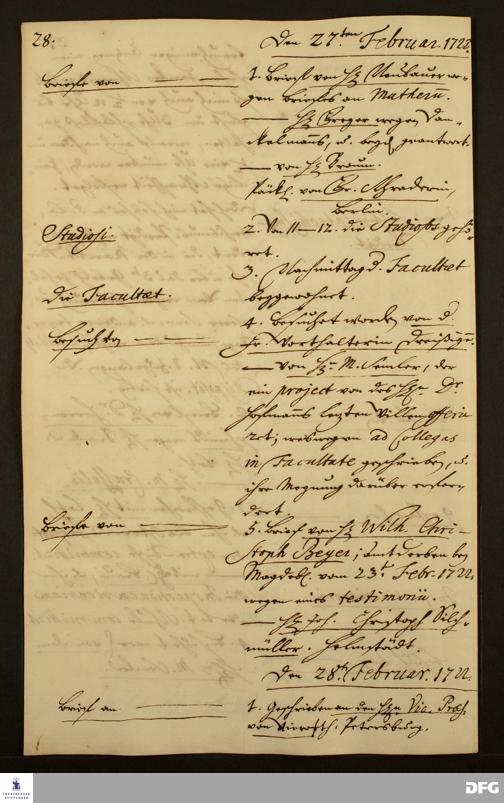 28.
Den 27.ten Februar. 1722.
Briefe von
1. Brief von H. Neubauer we-
gen Briefes an Mathern.
H. Greger wegen Dan-
ckelmanns, u. beyd. geantwort.
von H. Braun.
Päckl. von Fr. Schraderin,
Berlin.
Studiosi.
2. Von 11–12. die Studiosos gehö-
ret.
Die Facultæt.
3. Nachmittag d. Facultæt
beygewohnet.
Besuch von
4. Besuchet worden von d.
Fr.
von H. M. Semler, der
ein project von des H. Dr.
letzten Willen offeri-
ret; weswegen ad Collegas
in Facultate geschrieben, u.
ihre Meynung darüber erfor-
dert.
Briefe von
5. Brief von H. Wilh. Chri-
stoph Beyer; bey
Magdeb. vom 23.t Febr. 1722.
wegen eines testimonii.
H. Joh. Christoph Silch-
müller. Helmstädt.
Den 28.t Februar. 1722.
Brief an
1. Geschrieben an den H. Vic. Præs.
von Petersburg.
FRANCKESCHE
STIFTUNGEN
DFG